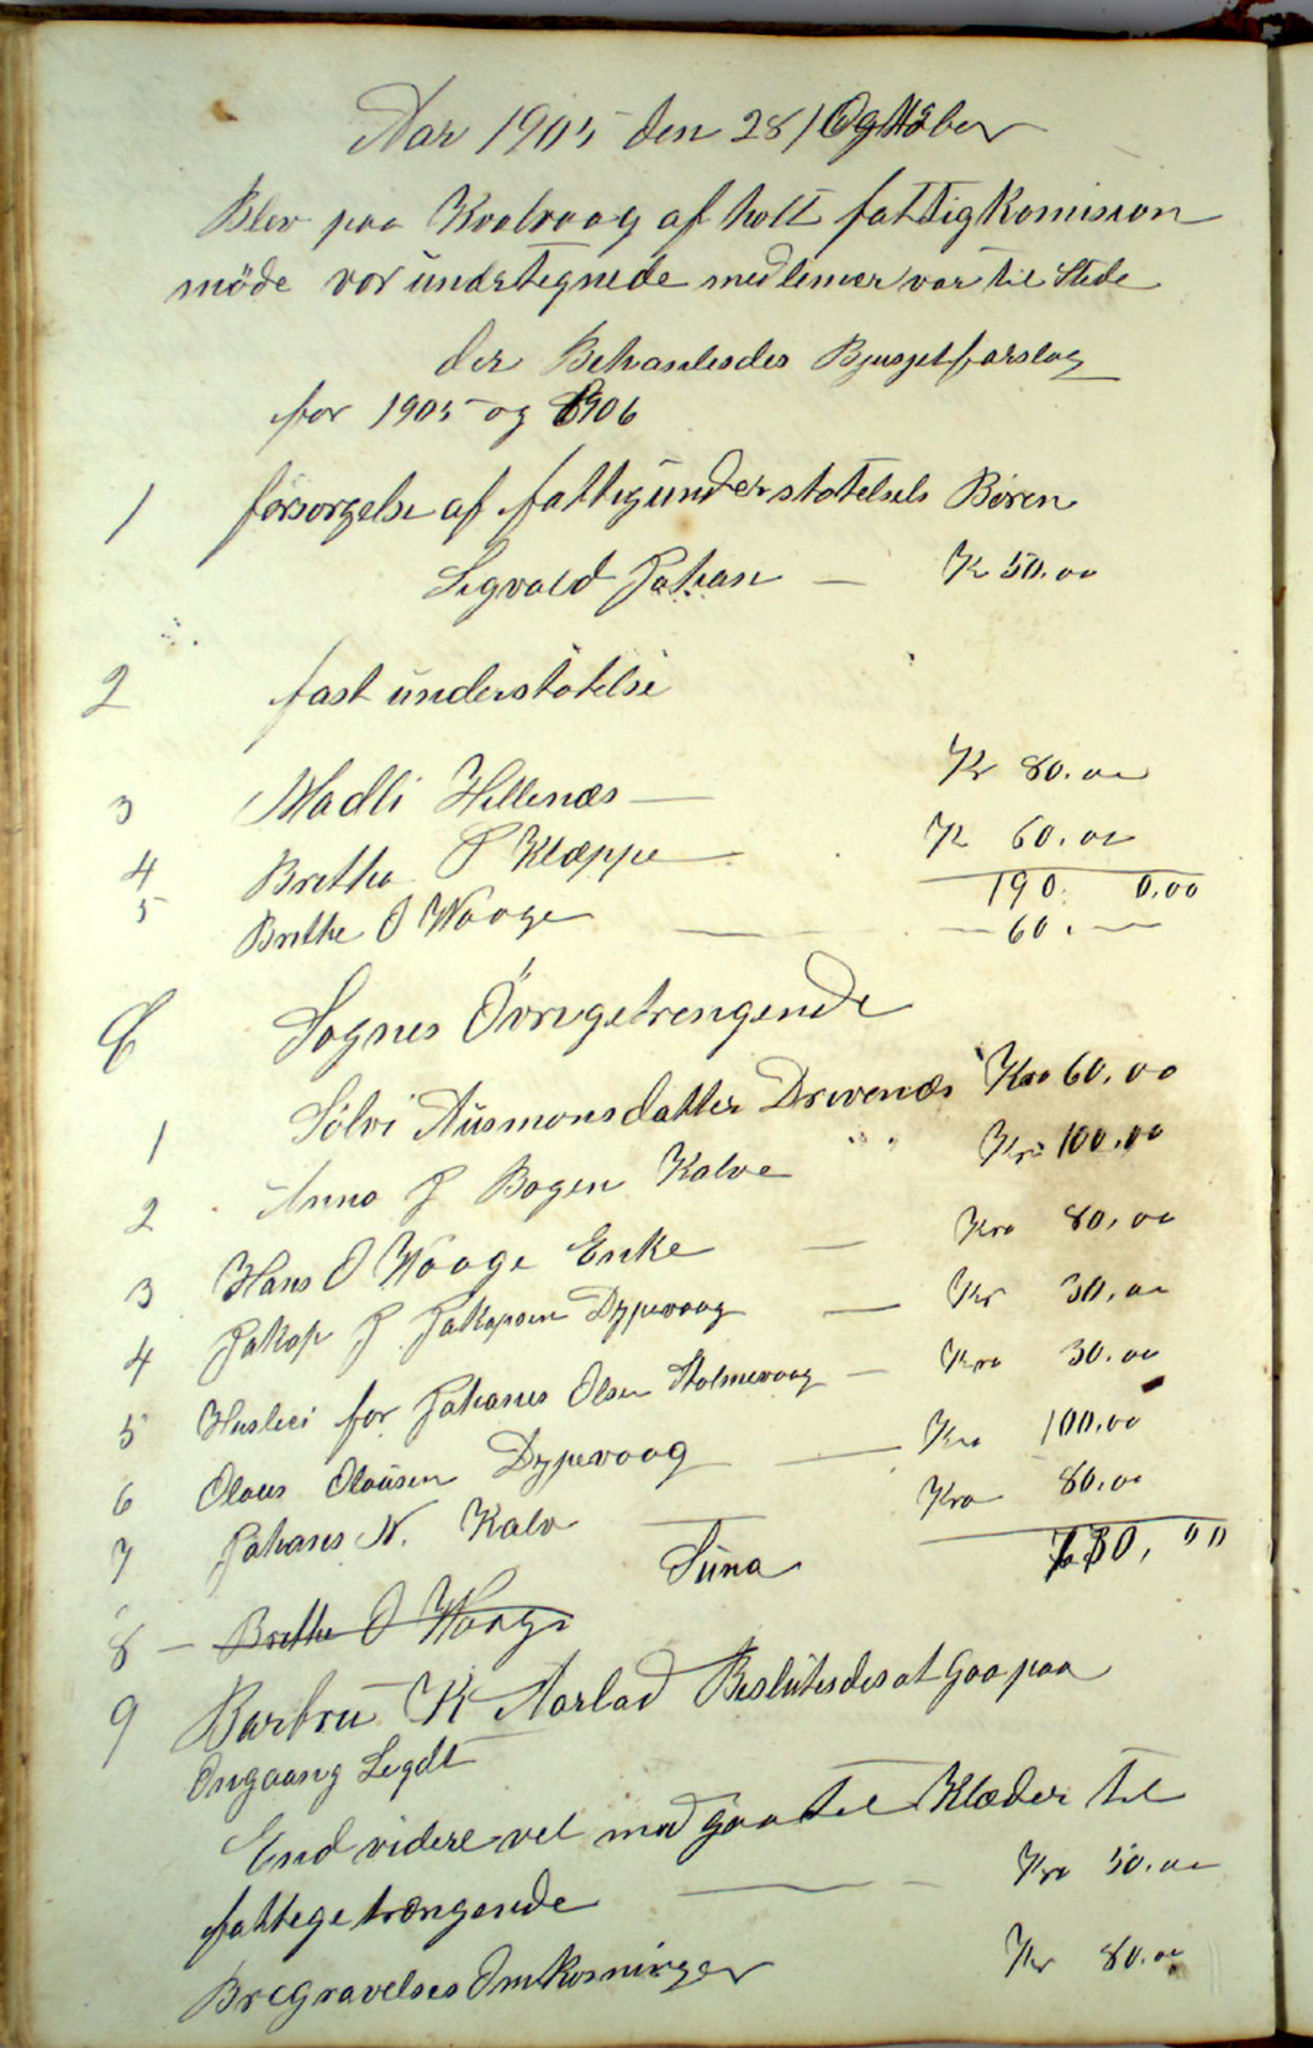 Aar 1905 den 28/ Ogttober
Blev paa Kvalvaag af holt fattigkomision
möde vor undetegnede medlemer var til Stede
der Behanledes Bjusjetforslag
for 1905 og 1906
1 forsorgelse af fattigunderstotelsels Bören
Sigvald Johan — Kr 50.00
2 fast understøtelse
3 Madli Hellenæs — Kr 80.00
4 Britha J Klæppe — Kr 60.00
190. 0.00
5 Brithe O Waage — 60. —
C Sognes Övrigetrengende
1 Sölvi Ausmonsdatter Drevenæs Kro 60.00
2 Anna J Bogen Kalve " " Kro 100.00
3 Hans O Waage Enke — Kro 80.00
4 Jakop J Jakopsen Dypevaag — Kr 30.00
5 Husleie for Johanes Olsen Holmevaag — Kro 30.00
6 Olaus Olausen Dypevaag — Kro 100.00
7 Johanes N. Kalv — Kro 80.00
Suna 730,00
8 — Brithe O Waage
9 Barbru K Aarland Beslutedes at gaa paa
Omgaang Legdt
End videre vel med gaa til Klæder til
fattige trængende — Kro 50.00
Bregravelses Omkosninger Kr 80.00